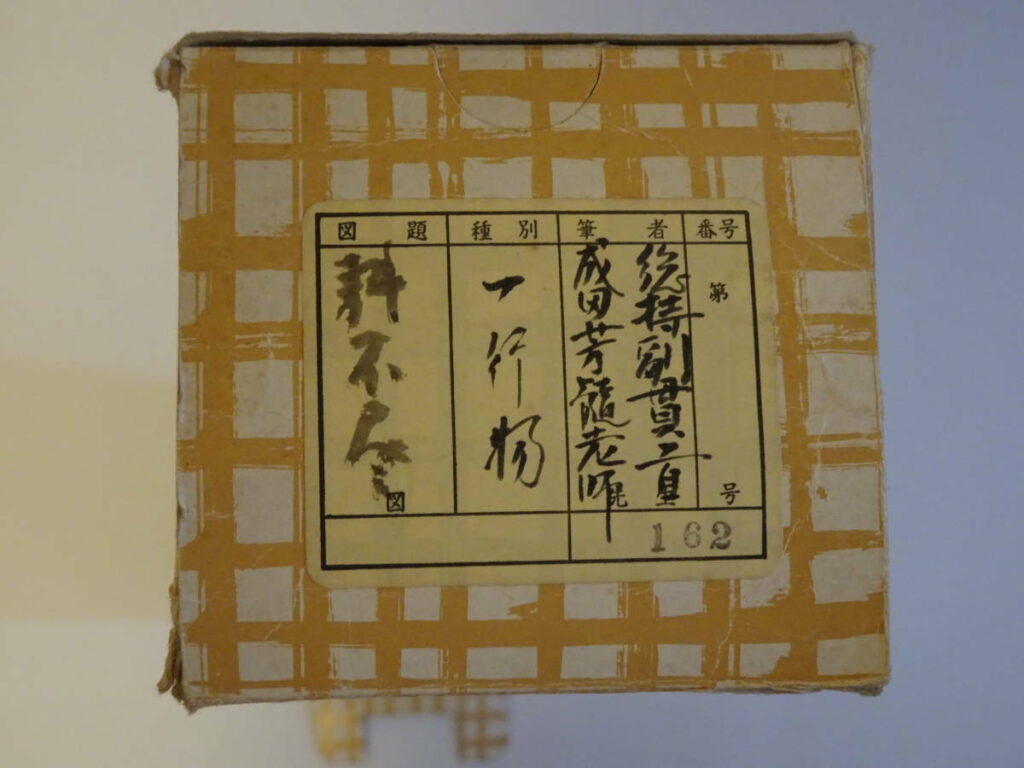 番号
第
号
筆者
総持副貫首
成田芳髄老師
種別
一行物
図題
耕不尽
図
162